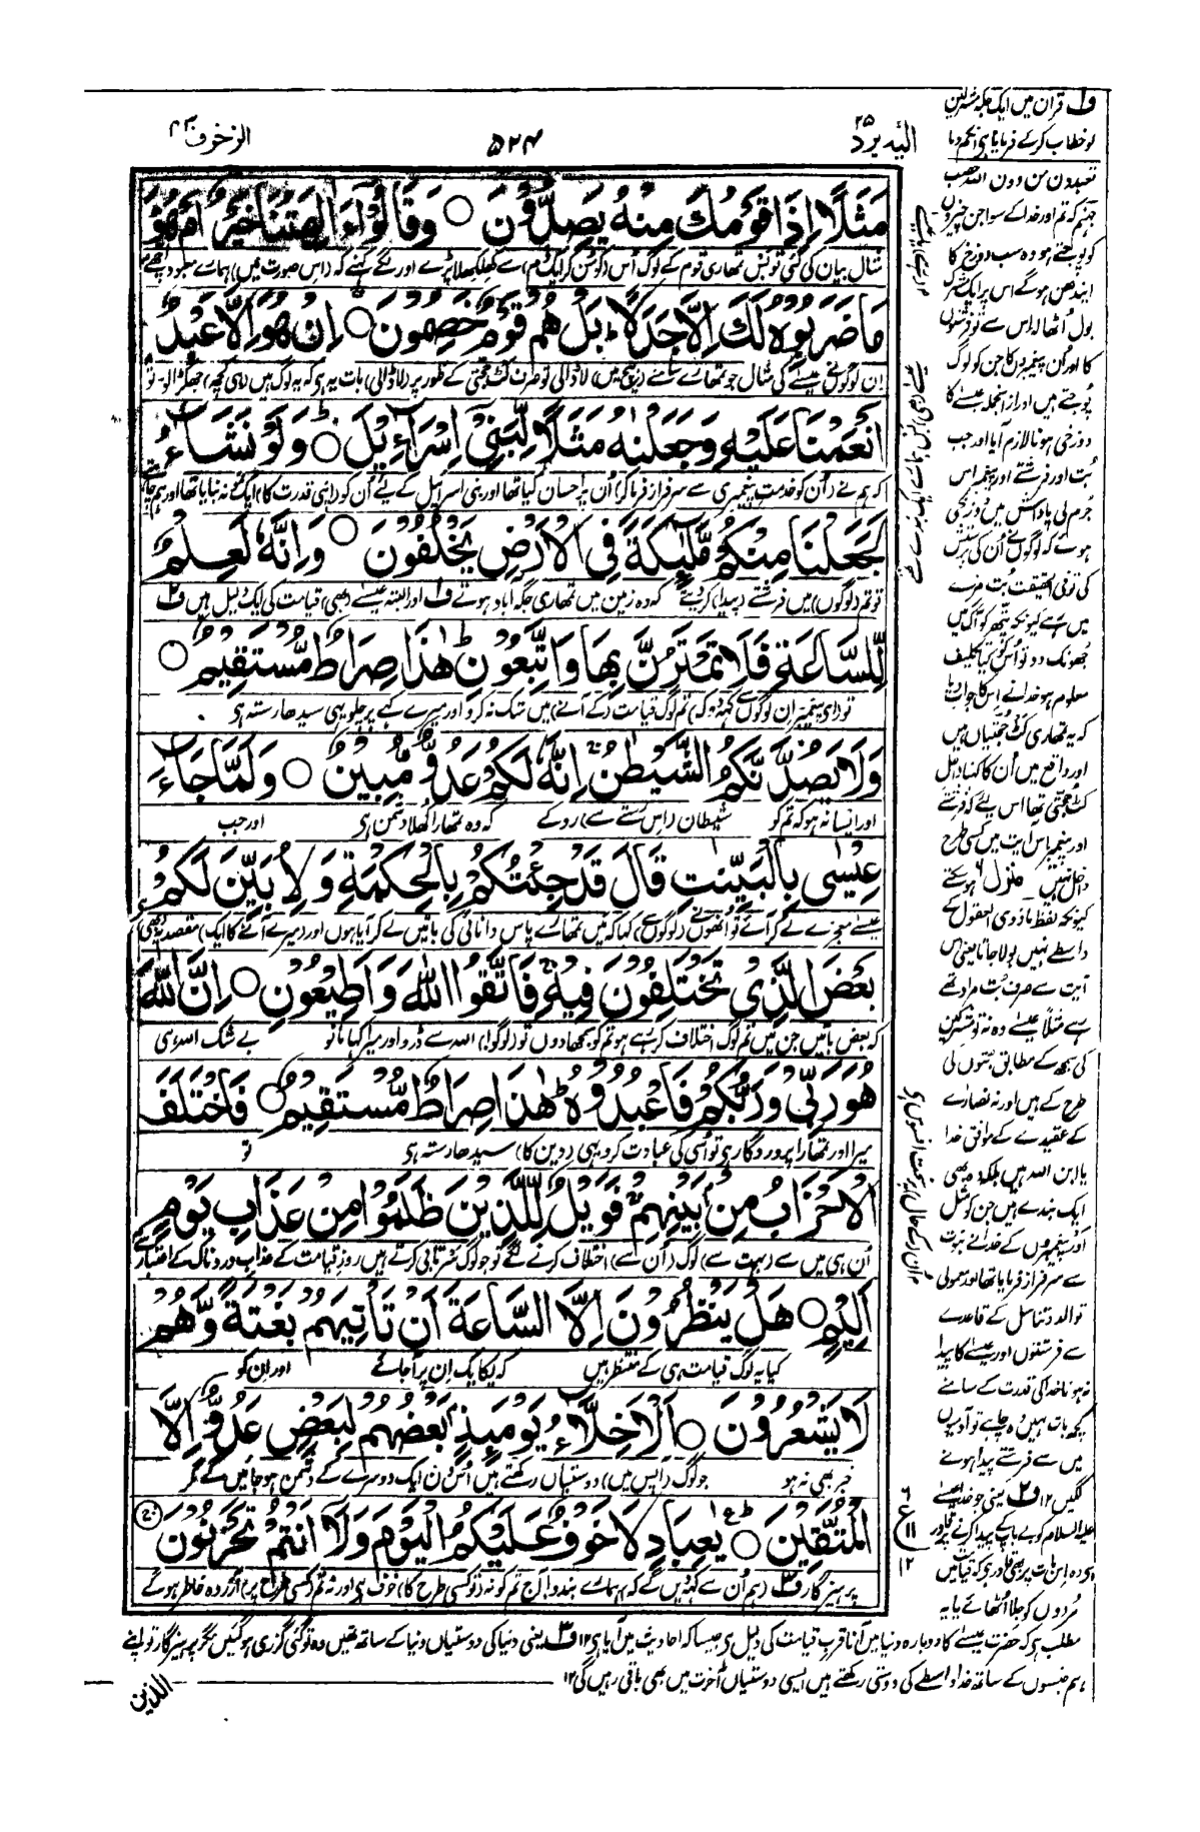 الیه یرد ۲۵
۵۲۴
الزخرف ۴۳
مَثَلًا إِذَا قَوْمُكَ مِنْهُ يَصِدُّونَ ○ وَقَالُوٓا ءَاٰلِهَتُنَا خَيْرٌ اَمْ هُوَ
مثال بیان کی گئی تو بس تمھاری قوم کے لوگ اُس کو سُن کر ایک دم سے کھلکھلا پڑے اور لگے کہنے کہ (اِس صورت میں) ہمارے معبود اچھے
مَا ضَرَبُوْهُ لَكَ اِلَّا جَدَلًا ؕ بَلْ هُمْ قَوْمٌ خَصِمُوْنَ ○ اِنْ هُوَ اِلَّا عَبْدٌ
اِن لوگوں نے عیسےٰ کی مثال جو تمھارے سامنے (بیچ میں) لا ڈالی تو صرف کٹ حجتی کے طور پر (لا ڈالی) بات یہ ہی کہ یہ لوگ ہیں
اَنْعَمْنَا عَلَيْهِ وَجَعَلْنٰهُ مَثَلًا لِّبَنِيْٓ اِسْرَآءِيْلَ ○ وَلَوْ نَشَآءُ
کہ ہم نے اُن کو خدمتِ پیغمبری سے سرفراز فرما کر اُن پر احسان کیا تھا اور بنی اسرائیل کے لیے اُن کو (اپنی قدرت کا) ایک نمونہ بنایا تھا اور ہم چاہتے
لَجَعَلْنَا مِنْكُمْ مَّلٰٓئِكَةً فِي الْاَرْضِ يَخْلُفُوْنَ ○ وَاِنَّهٗ لَعِلْمٌ
تو تم (لوگوں) میں فرشتے (پیدا) کر دیتے کہ وہ زمین میں تمھاری جگہ آباد ہوتے ف۱ اور البتہ عیسےٰ (بھی) قیامت کی ایک دلیل ہیں ف۲
لِّلسَّاعَةِ فَلَا تَمْتَرُنَّ بِهَا وَاتَّبِعُوْنِ ؕ هٰذَا صِرَاطٌ مُّسْتَقِيْمٌ ○
تو (ای پیغمبر اِن لوگوں سے کہدو کہ) تم لوگ قیامت (کے آنے) میں شک نہ کرو اور میرے کہے پر چلو یہی سیدھا رستہ ہی
وَلَا يَصُدَّنَّكُمُ الشَّيْطٰنُ ۚ اِنَّهٗ لَكُمْ عَدُوٌّ مُّبِيْنٌ ○ وَلَمَّا جَآءَ
اور ایسا نہ ہو کہ تم کو شیطان (راس رستے سے) روکے کہ وہ تمھارا کھلا دشمن ہی اور جب
عِيْسٰى بِالْبَيِّنٰتِ قَالَ قَدْ جِئْتُكُمْ بِالْحِكْمَةِ وَلِاُبَيِّنَ لَكُمْ
عیسےٰ معجزے لے کر آئے تو اُنھوں نے (لوگوں سے) کہا کہ میں تمھارے پاس دانائی کی باتیں لے کر آیا ہوں اور (میرے آنے کا ایک) مقصد یہ بھی
بَعْضَ الَّذِيْ تَخْتَلِفُوْنَ فِيْهِ ۚ فَاتَّقُوا اللّٰهَ وَاَطِيْعُوْنِ ○ اِنَّ اللّٰهَ
کہ بعض باتیں جن میں تم لوگ اختلاف کر رہے ہو تم کو سمجھا دوں تو (لوگو!) اللہ سے ڈرو اور میرا کہا مانو بے شک اللہ ہی
هُوَ رَبِّيْ وَرَبُّكُمْ فَاعْبُدُوْهُ ؕ هٰذَا صِرَاطٌ مُّسْتَقِيْمٌ ○ فَاخْتَلَفَ
میرا اور تمھارا پروردگار ہی تو اُسی کی عبادت کرو یہی (دین کا) سیدھا رستہ ہی تو
الْاَحْزَابُ مِنْۢ بَيْنِهِمْ ۚ فَوَيْلٌ لِّلَّذِيْنَ ظَلَمُوْا مِنْ عَذَابِ يَوْمٍ
اُن ہی میں سے (بہت سے) لوگ (اُن سے) اختلاف کرنے لگے تو جو لوگ سرتابی کرتے ہیں روزِ قیامت کے عذابِ دردناک کے اعتبار سے
اَلِيْمٍ ○ هَلْ يَنْظُرُوْنَ اِلَّا السَّاعَةَ اَنْ تَاْتِيَهُمْ بَغْتَةً وَّهُمْ
کیا یہ لوگ قیامت ہی کے منتظر ہیں کہ یکایک اِن پر آجائے اور اِن کو
لَا يَشْعُرُوْنَ ○ اَلْاَخِلَّآءُ يَوْمَئِذٍۢ بَعْضُهُمْ لِبَعْضٍ عَدُوٌّ اِلَّا
خبر بھی نہ ہو جو لوگ (آپس میں) دوستیاں رکھتے ہیں اُس دن ایک دوسرے کے دشمن ہو جائیں گے مگر
الْمُتَّقِيْنَ ○ يٰعِبَادِ لَا خَوْفٌ عَلَيْكُمُ الْيَوْمَ وَلَآ اَنْتُمْ تَحْزَنُوْنَ
پرہیزگار ف۳ (ہم اُن سے کہیں گے کہ) ہمارے بندو! آج تم کو نہ تو کسی طرح کا) خوف ہی اور نہ تم (کسی طرح پر) آزردہ خاطر ہوگے
ف۱ قرآن میں ایک جگہ مشرکین
کو خطاب کر کے فرمایا ہی انکم وما
تعبدون من دون اللہ حصب
جہنم کہ تم اور خدا کے سوا جن چیزوں
کو پوجتے ہو وہ سب دوزخ کا
ایندھن ہوگے اس پر ایک مشرک
بول اُٹھا کہ اِس سے تو فرشتوں
کا اور اُن پیغمبروں کا جن کو لوگ
پُوجتے ہیں اور از انجملہ عیسےٰ کا
دوزخی ہونا لازم آیا اور جب
بُت اور فرشتے اور پیغمبر اس
جُرم کی پاداش میں دوزخی
ہوئے کہ لوگوں نے اُن کی پرستش
کی تو فی الحقیقت بُت مزے
میں رہے کیونکہ پتھر کو آگ میں
جھونک دو تو اُس کو کیا تکلیف
معلوم ہو خدا نے اِس کا جواب دیا
کہ یہ تمھاری کٹ حجتیاں ہیں
اور واقع میں اُن کا کہنا داخل
کٹ حجتی تھا اس لیے کہ فرشتے
اور پیغمبر اِس آیت میں کسی طرح
داخل نہیں ہو سکتے
کیونکہ لفظ ما ذوی العقول کے
واسطے نہیں بولا جاتا یعنی اس
آیت سے صرف بُت مراد تھے
رہے مثلاً عیسےٰ وہ نہ تو مشرکین
کی سمجھ کے مطابق بتوں کی
طرح کے ہیں اور نہ نصارےٰ
کے عقیدے کے موافق خدا
یا ابن اللہ ہیں بلکہ وہ بھی
ایک بندے ہیں جن کو مثل
اور پیغمبروں کے خدا نے نبوت
سے سرفراز فرمایا تھا اور معمولی
توالد و تناسل کے قاعدے
سے فرشتوں اور عیسےٰ کا پیدا
نہ ہونا خدا کی قدرت کے سامنے
کچھ بات نہیں وہ چاہے تو آدمیوں
میں سے فرشتے پیدا ہونے
لگیں ۱۲ ف۲ یعنی جو خدا عیسےٰ
علیہ السلام کو بے باپ کے پیدا کرنے پر قادر
ہی وہ اِس بات پر بھی قادر ہی کہ قیامت میں
مُردوں کو جِلا اُٹھائے یا یہ
مطلب ہی کہ حضرت عیسےٰ کا دوبارہ دنیا میں آنا قربِ قیامت کی دلیل ہی جیسا کہ احادیث میں آیا ہی ۱۲ ف۳ یعنی دنیا کی دوستیاں دنیا کے ساتھ تھیں وہ تو گئی گزری ہو گئیں مگر پرہیزگار تو اپنے
ہم جنسوں کے ساتھ خدا واسطے کی دوستی رکھتے ہیں ایسی دوستیاں آخرت میں بھی باقی رہیں گی ۱۲
الذین